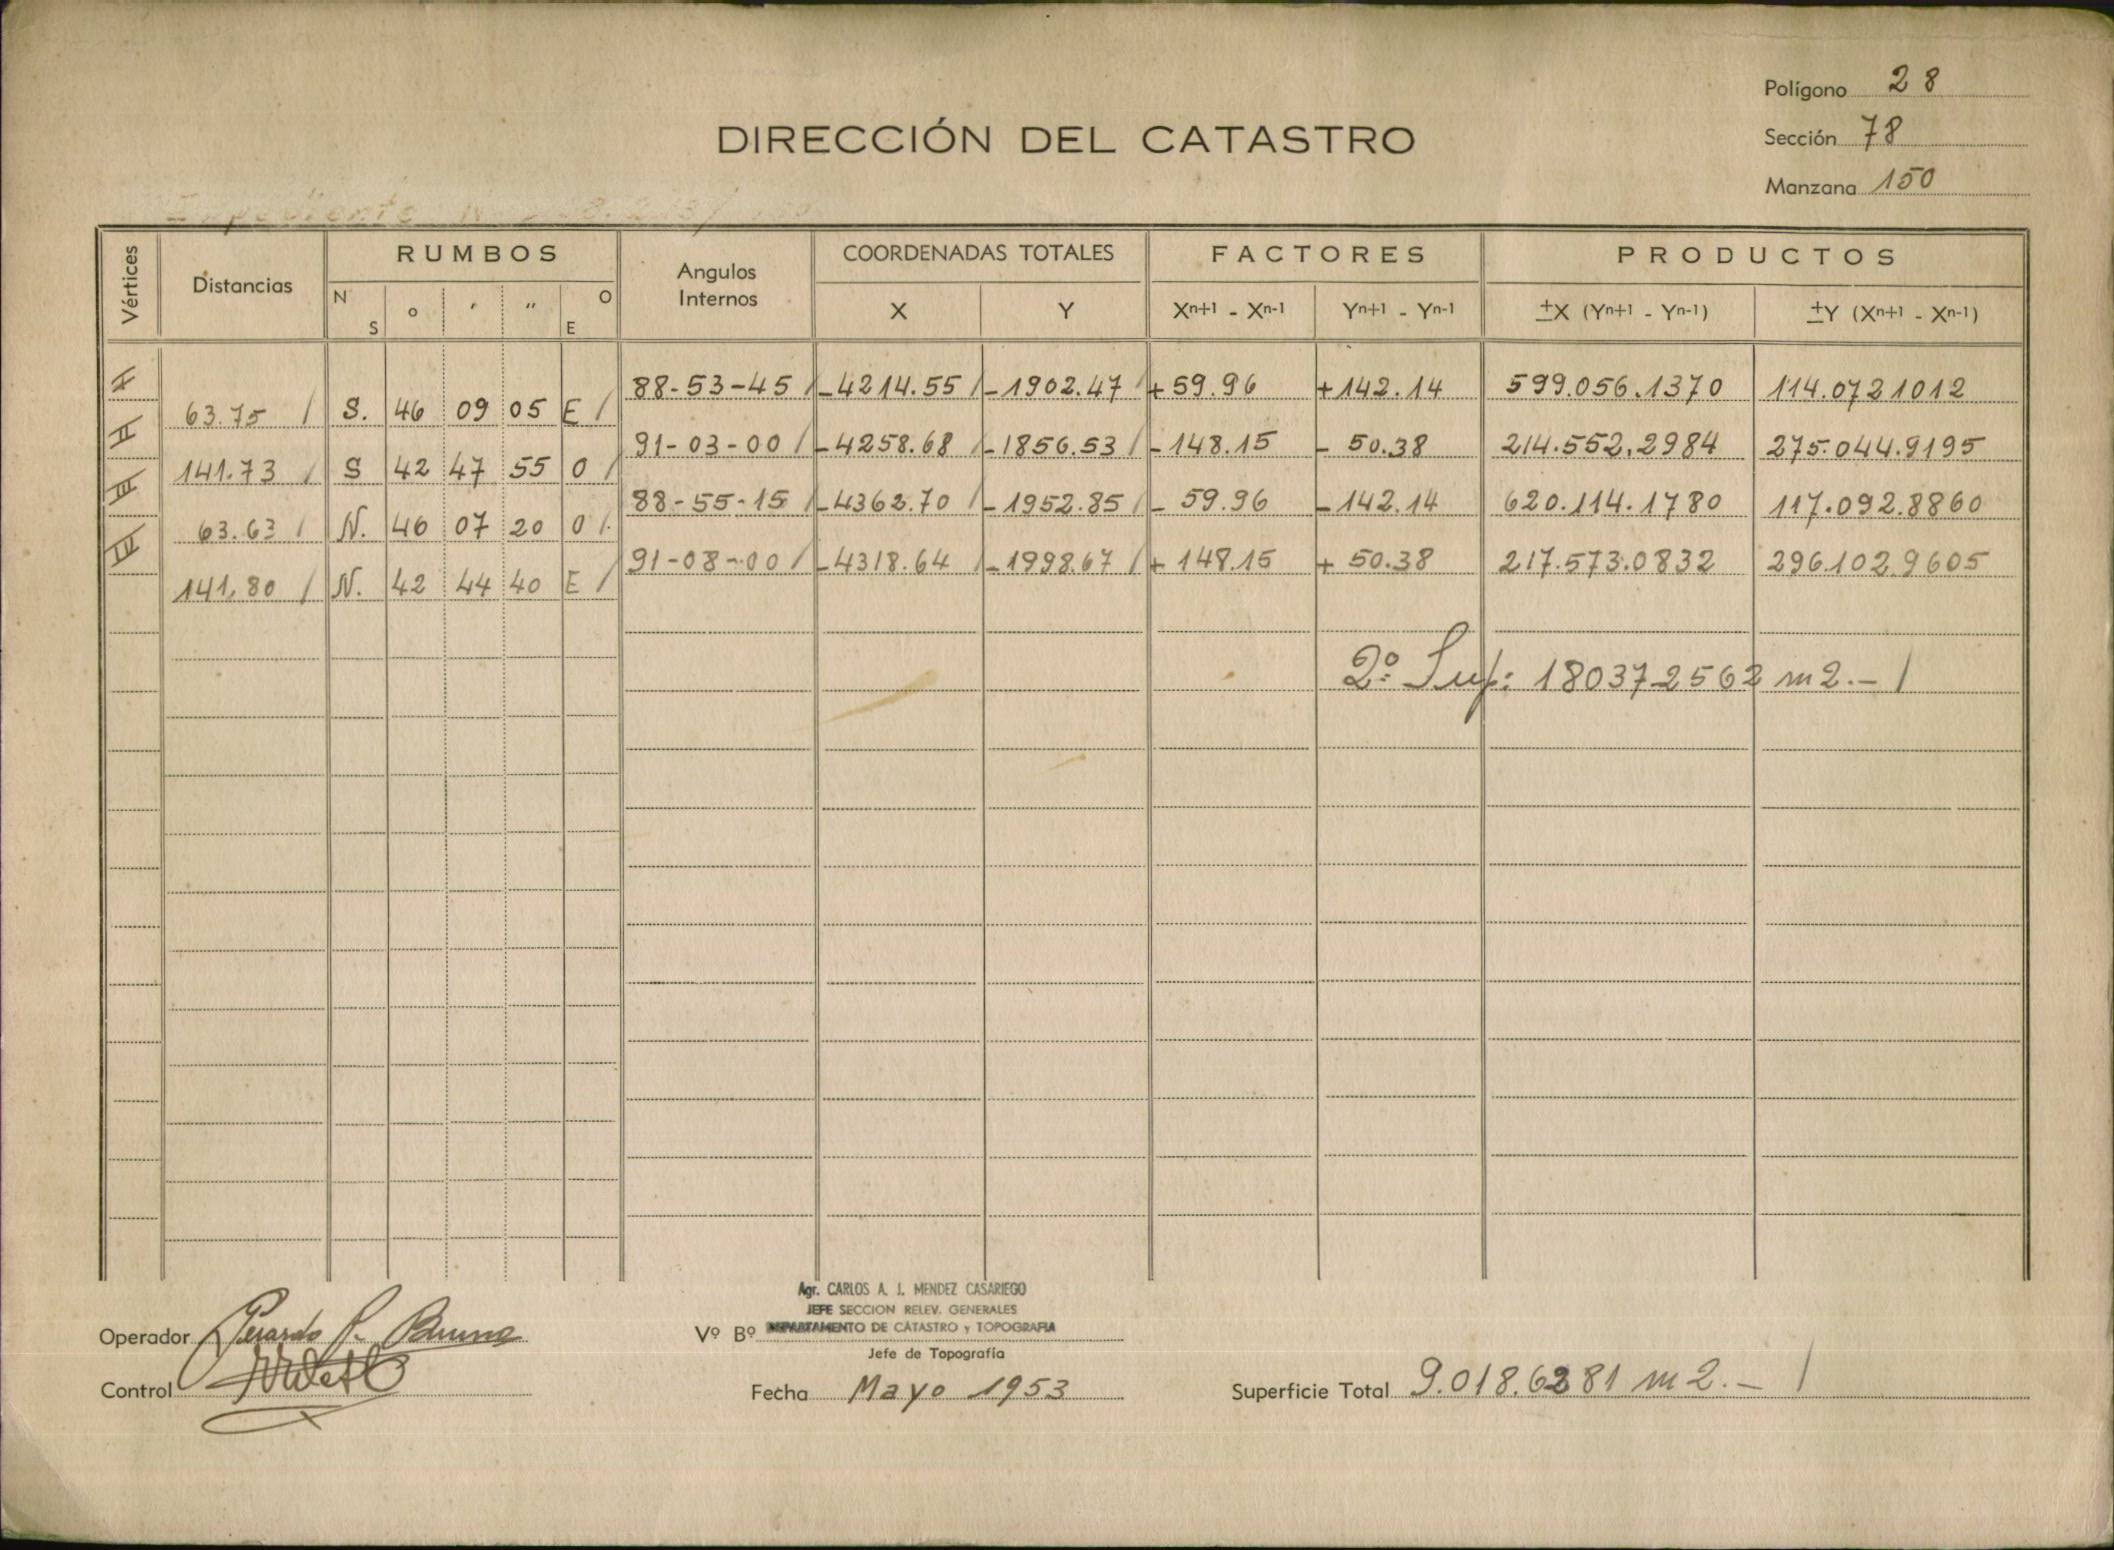 Polígono 28
DIRECCIÓN DEL CATASTRO
Sección 78
Manzana 150
Expediente
Vértices Distancias RUMBOS Angulos Internos COORDENADAS TOTALES FACTORES PRODUCTOS
N S ° ′ ″ O E X Y Xn+1 - Xn-1 Yn+1 - Yn-1 ±X (Yn+1 - Yn-1) ±Y (Xn+1 - Xn-1)
I 88-53-45 / -4214.55 / -1902.47 / +59.96 +142.14 599.056.1370 114.0721012
63.75 / S. 46 09 05 E /
II 91-03-00 / -4258.68 / -1856.53 / -148.15 - 50.38 214.552.2984 275.044.9195
141.73 / S 42 47 55 O /
III 88-55-15 / -4362.70 / -1952.85 / - 59.96 -142.14 620.114.1780 117.092.8860
63.63 / N. 46 07 20 O /.
IV 91-08-00 / -4318.64 / -1998.67 / + 148.15 + 50.38 217.573.0832 296.102.9605
141.80 / N. 42 44 40 E /
2º Sup: 180372562 m2.- /
Agr. CARLOS A. J. MENDEZ CASARIEGO
JEFE SECCION RELEV. GENERALES
DEPARTAMENTO DE CATASTRO y TOPOGRAFIA
Operador Gerardo P. Bruno
Vº Bº
Jefe de Topografía
Control
Fecha Mayo 1953
Superficie Total 9.018.6281 m2.- /